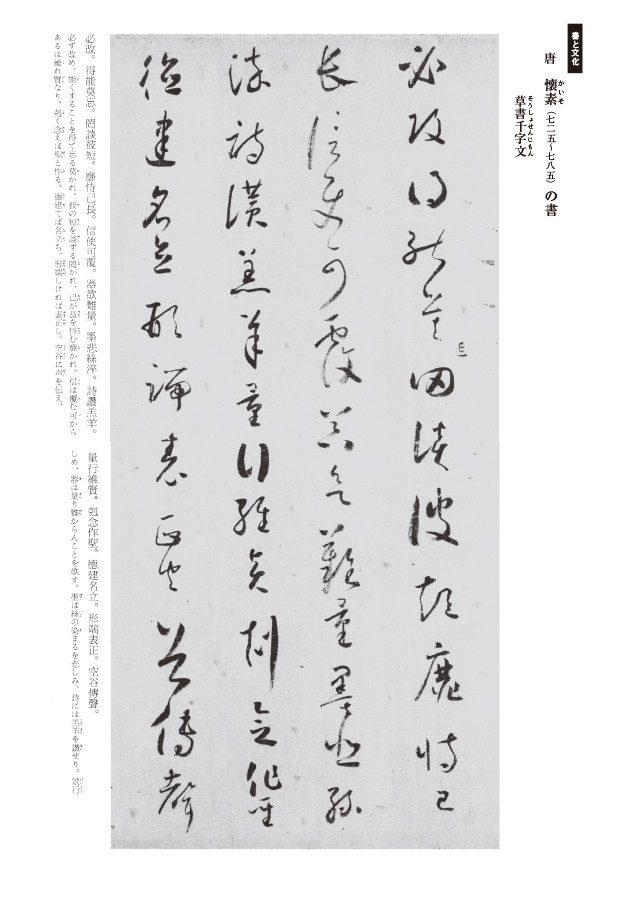 書と文化
唐 懐素（七二五～七八五）の書
かいそ
草書千字文
そうしょせんじもん
必改得能莫忘罔談彼短靡恃己
長信使可覆器欲難量墨悲絲
淬詩讃羔羊量行維賢剋念作聖
德建名立形端表正空谷傳聲
必改。得能莫忘。罔談彼短。靡恃己長。信使可覆。器欲難量。墨悲絲淬。詩讚羔羊。量行維賢。剋念作聖。德建名立。形端表正。空谷傳聲。
必ず改め、能くすることを得て忘る莫かれ。彼の短を談ずる罔かれ、己が長を恃む靡かれ。信は覆む可からしめ、器は量り難からんことを欲す。墨は絲の染まるを悲しみ、詩には羔羊を讃せり。景行
あるは維れ賢なり、剋く念えば聖と作る。德建てば名立ち、形端しければ表正し。空谷に声を伝え、